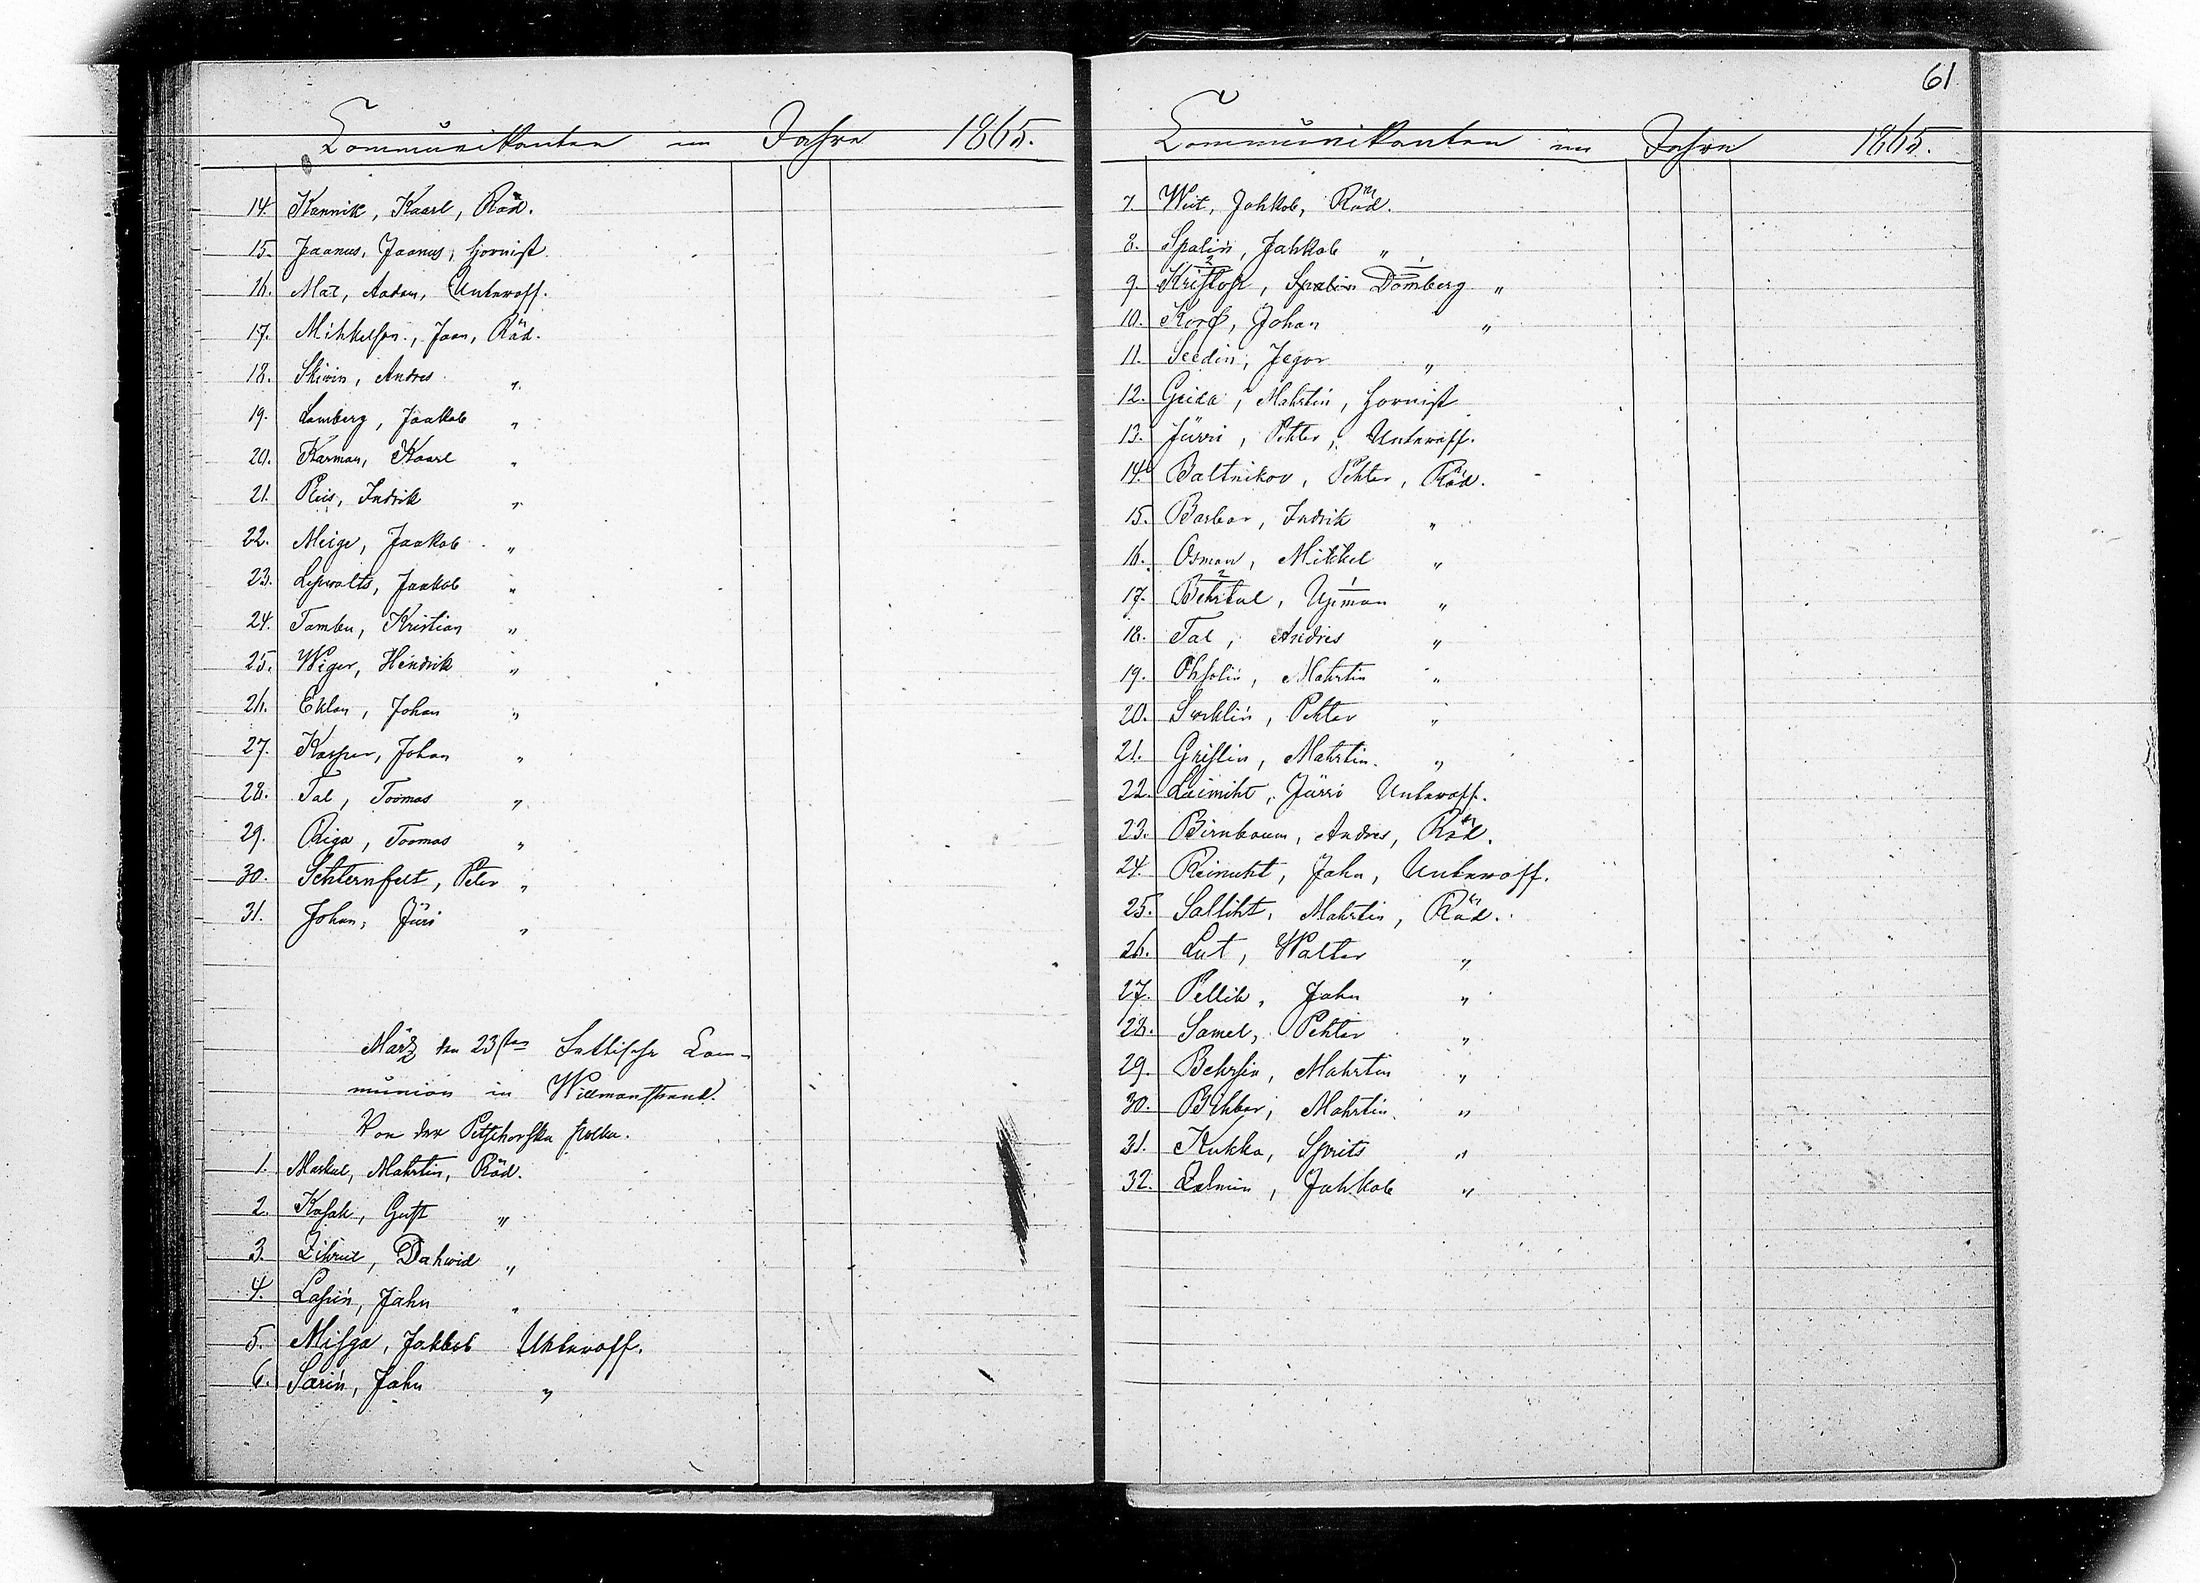 Communikanten im Jahre 1865.
14. Kannik, Kaarl, Räd.
15. Jaanus, Jaanus, Hornist.
16. Mat, Aadam, Unteroff.
17. Mihkelson, Jaan, Räd.
18. Skivin, Andres "
19. Lamberg, Jaakob "
20. Karman, Kaarl "
21. Reis, Indrik "
22. Meige, Jaakob "
23. Jaakob "
24. Tamben, Kristian "
25. Wiger, Hindrik "
26. Johan "
27. Kasper, Johan "
28. Tal, Toomas "
29. Riga, Toomas "
30. Schternfelt, Peter "
31. Johan, Jüri "
März den 23sten Lettische Com-
munion in Willmanstrand.
Von der Petschorska Polka.
1. Maskal, Mahrtin, Räd.
2. Kasak, Gust "
3. Zihrul, Dahwid "
4. Lapin, Jahn "
5. Misga, Jakkob Unteroff.
6. Sarin, Jahn "
61
Communikanten im Jahre 1865.
7. Weit, Jahkob, Räd.
8. Spalin, Jahkob "
9. Kristofr, Spalin Domberg "
10. Korf, Johan "
11. Seedin, Jegor "
12. Geida, Mahrtin, Hornist
13. Jürri, Pehter, Unteroff.
14. Baltnikov, Pehter, Räd.
15. Barbar, Indrik "
16. Osman, Mikkel "
17. Behrtul, Upman "
18. Tal, Andres "
19. Ohsolin, Mahrtin "
20. Pehter "
21. Grislin, Mahrtin "
22. Laimiht, Jürri Unteroff.
23. Birnbaum, Andres, Räd.
24. Reinuht, Jahn, Unteroff.
25. Salliht, Mahrtin, Räd.
26. Lut, Walter "
27. Pellik, Jahn "
28. Samel, Pehter "
29. Behrsin, Mahrtin "
30. Mahrtin "
31. Kukka, Sprits "
32. Zalmin, Jahkob "